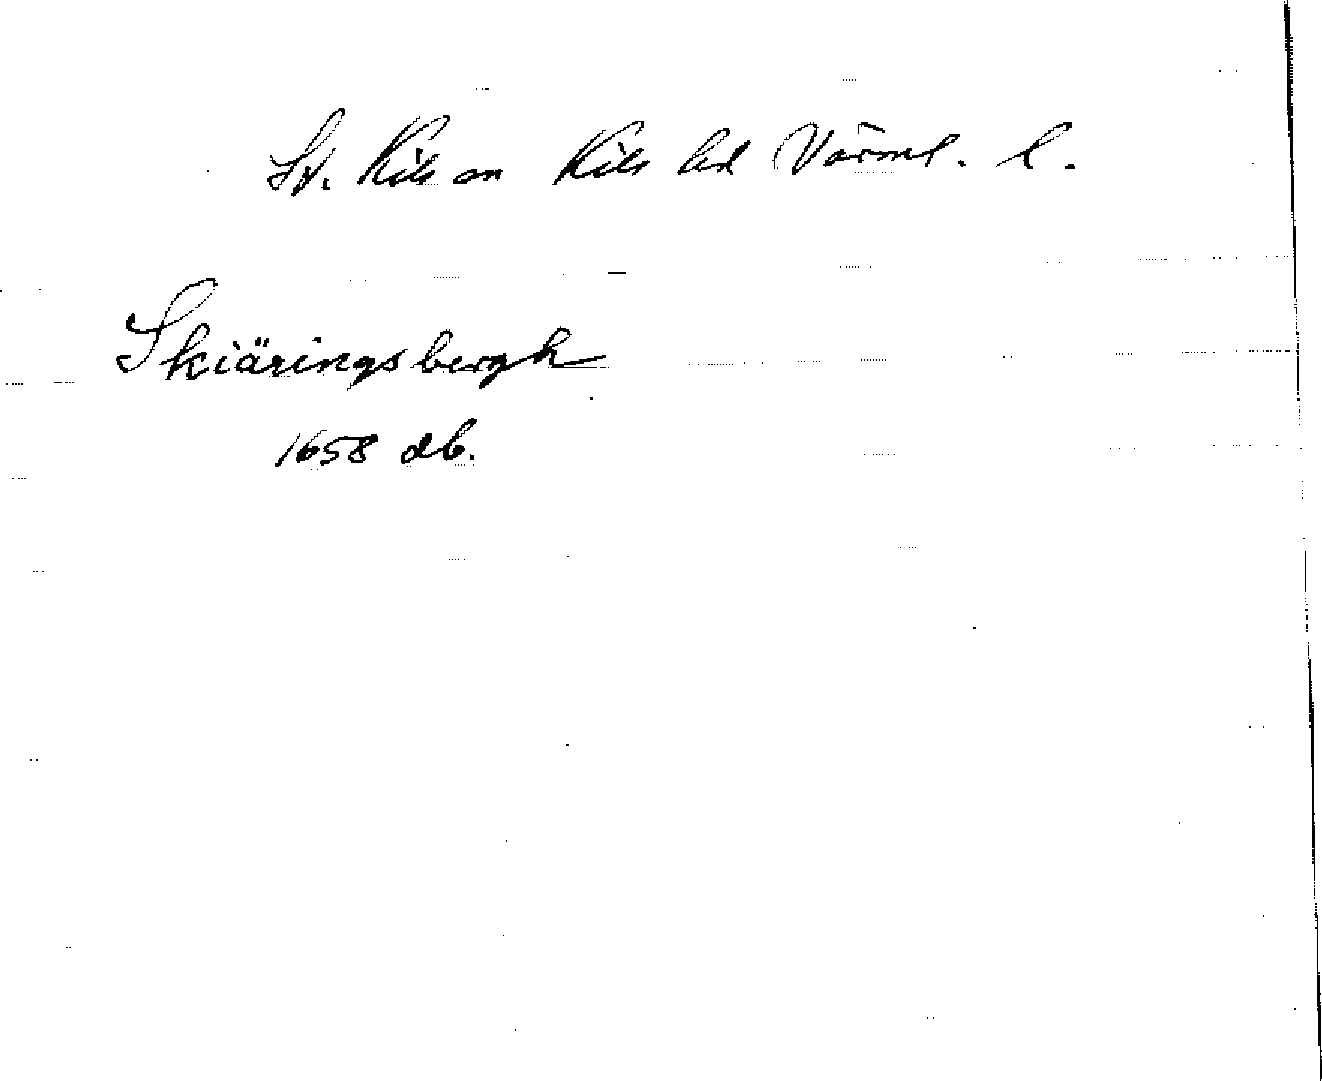 St. Kils sn Kils hd Värml. l.
Skiäringsbergh
1658 db.